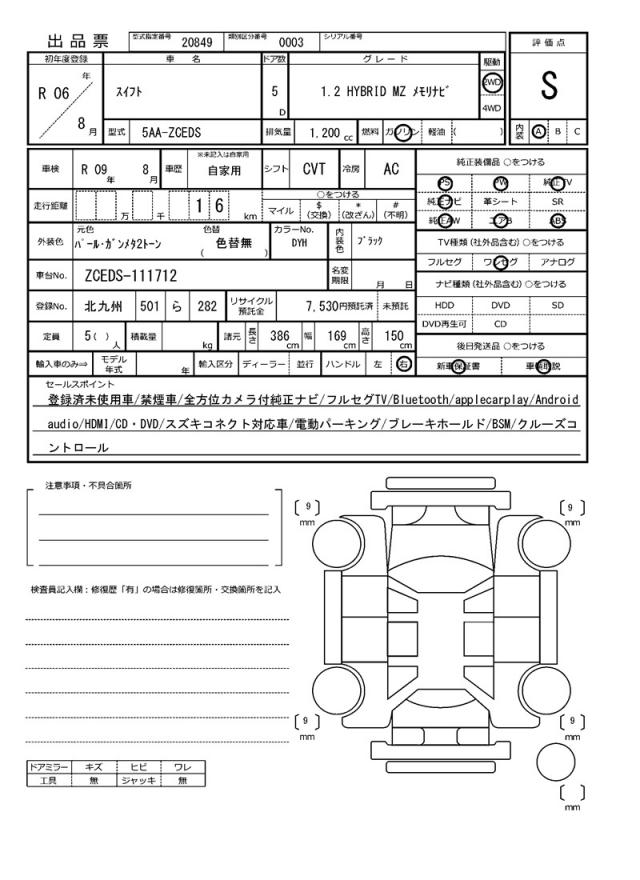 出品票 型式指定番号 20849 類別区分番号 0003 シリアル番号
評価点
S
内装 A B C
初年度登録 車名 ドア数 グレード 駆動
R 06 年 8 月
スイフト 5 D 1.2 HYBRID MZ メモリナビ 2WD
4WD
型式 5AA-ZCEDS 排気量 1.200 cc 燃料 ガソリン 軽油 ( )
車検 R 09 年 8 月 車歴 ※未記入は自家用 自家用 シフト CVT 冷房 AC
走行距離 万 千 1 6 km ○をつける
マイル $(交換) *(改ざん) #(不明)
外装色 元色 パール・ガンメタ2トーン 色替 ( 色替無 ) カラーNo. DYH 内装色 ブラック
車台No. ZCEDS-111712 名変期限 月 日
登録No. 北九州 501 ら 282 リサイクル預託金 7,530円預託済 未預託
定員 5( ) 人 積載量 kg 諸元 長さ 386 cm 幅 169 cm 高さ 150 cm
輸入車のみ⇒ モデル年式 年 輸入区分 ディーラー 並行 ハンドル 左 右
純正装備品 ○をつける
PS PW 純正TV
純正ナビ 革シート SR
純正AW エアB ABS
TV種類 (社外品含む) ○をつける
フルセグ ワンセグ アナログ
ナビ種類 (社外品含む) ○をつける
HDD DVD SD
DVD再生可 CD
後日発送品 ○をつける
新車保証書 車輌取説
セールスポイント
登録済未使用車/禁煙車/全方位カメラ付純正ナビ/フルセグTV/Bluetooth/applecarplay/Android
audio/HDMI/CD・DVD/スズキコネクト対応車/電動パーキング/ブレーキホールド/BSM/クルーズコ
ントロール
注意事項・不具合箇所
検査員記入欄：修復歴「有」の場合は修復箇所・交換箇所を記入
ドアミラー キズ ヒビ ワレ
工具 無 ジャッキ 無
〔 9 〕 mm
〔 9 〕 mm
〔 9 〕 mm
〔 9 〕 mm
〔 〕 mm